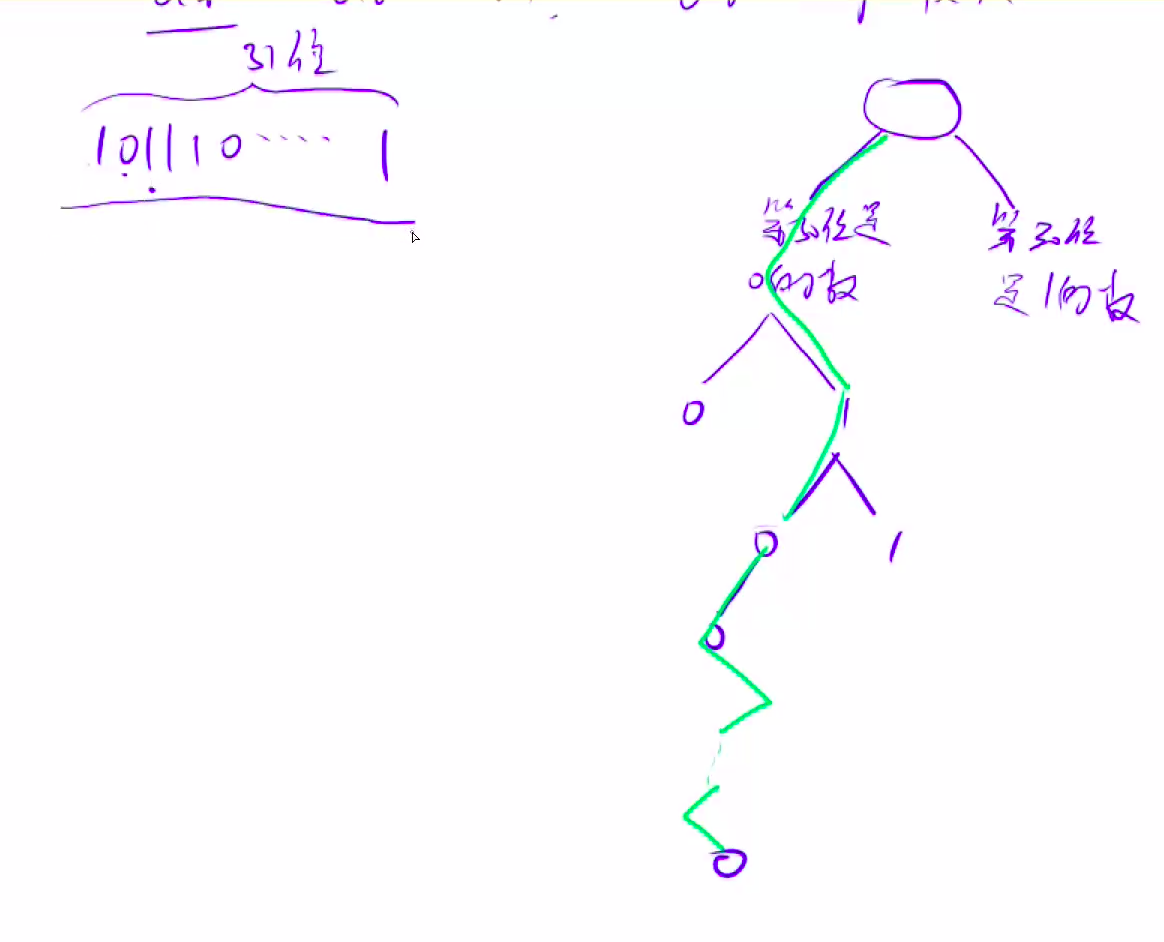 31位
101110····1
第30位是
0的数
第30位
是1的数
0
1
0
1
0
0